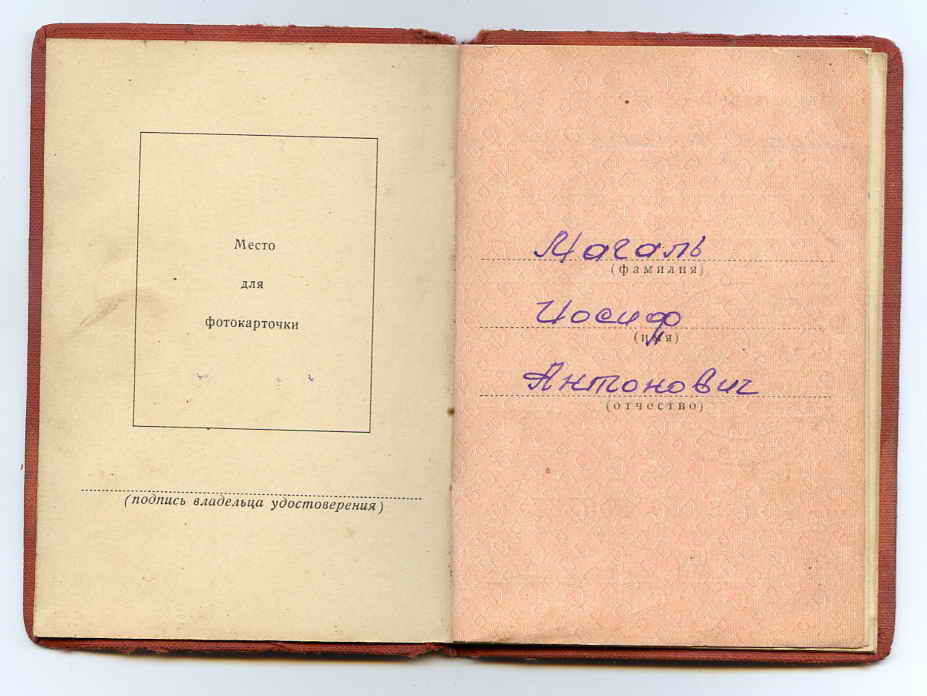 Место
для
фотокарточки
(подпись владельца удостоверения)
Магаль
(фамилия)
Иосиф
(имя)
Антонович
(отчество)